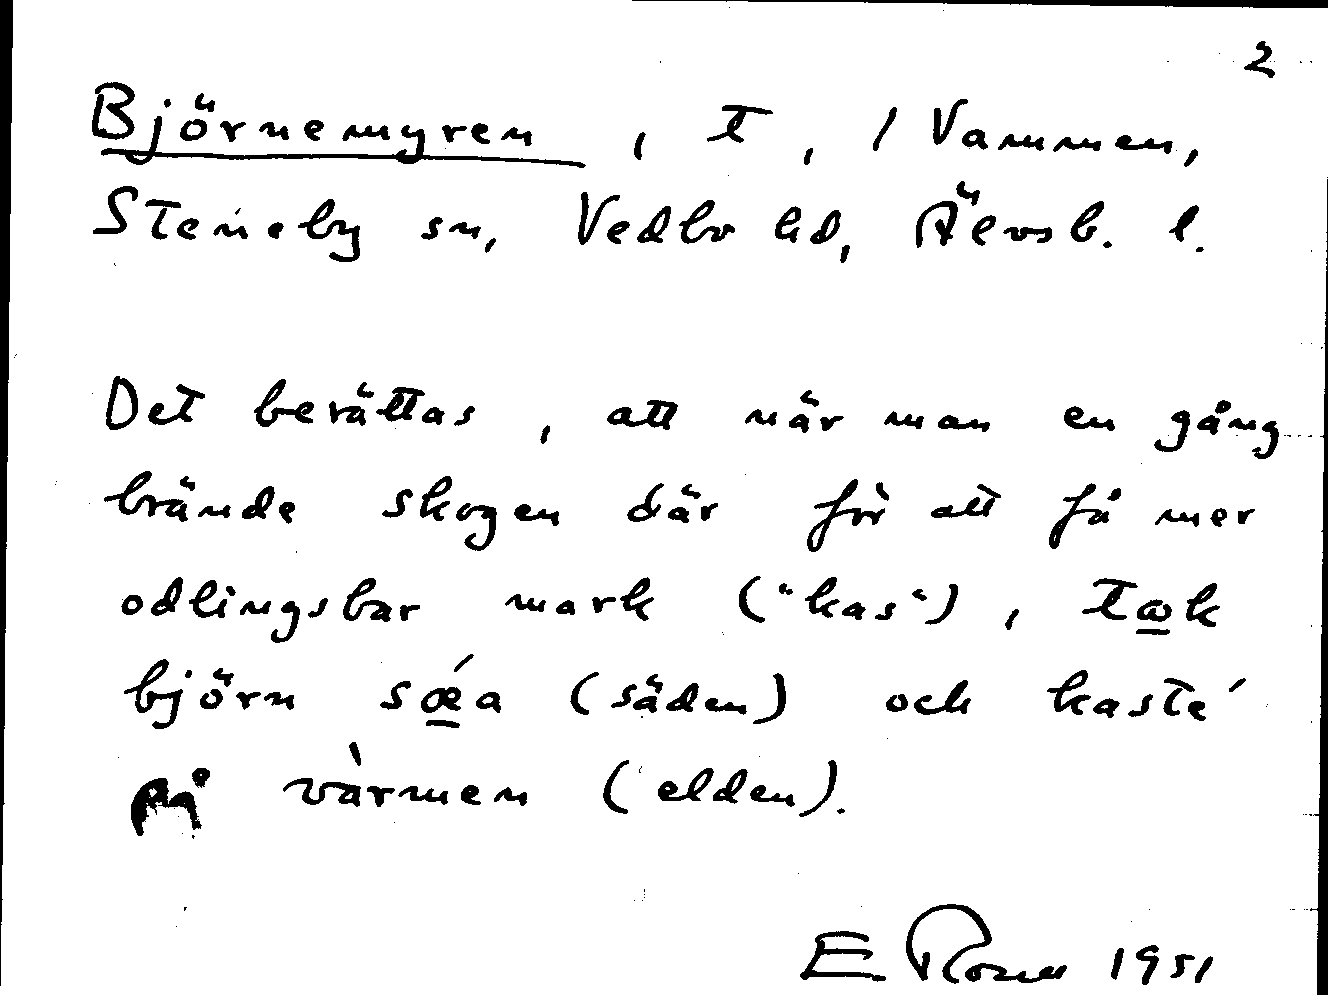 2
Björnemyren, t, / Vammen,
Steneby sn, Vedbo hd, Älvsb. l.
Det berättas, att när man en gång
brände skogen där för att få mer
odlingsbar mark ("kas"), tωk
björn sǽa (säden) och kasté
på vàrmen (elden).
E. 1951